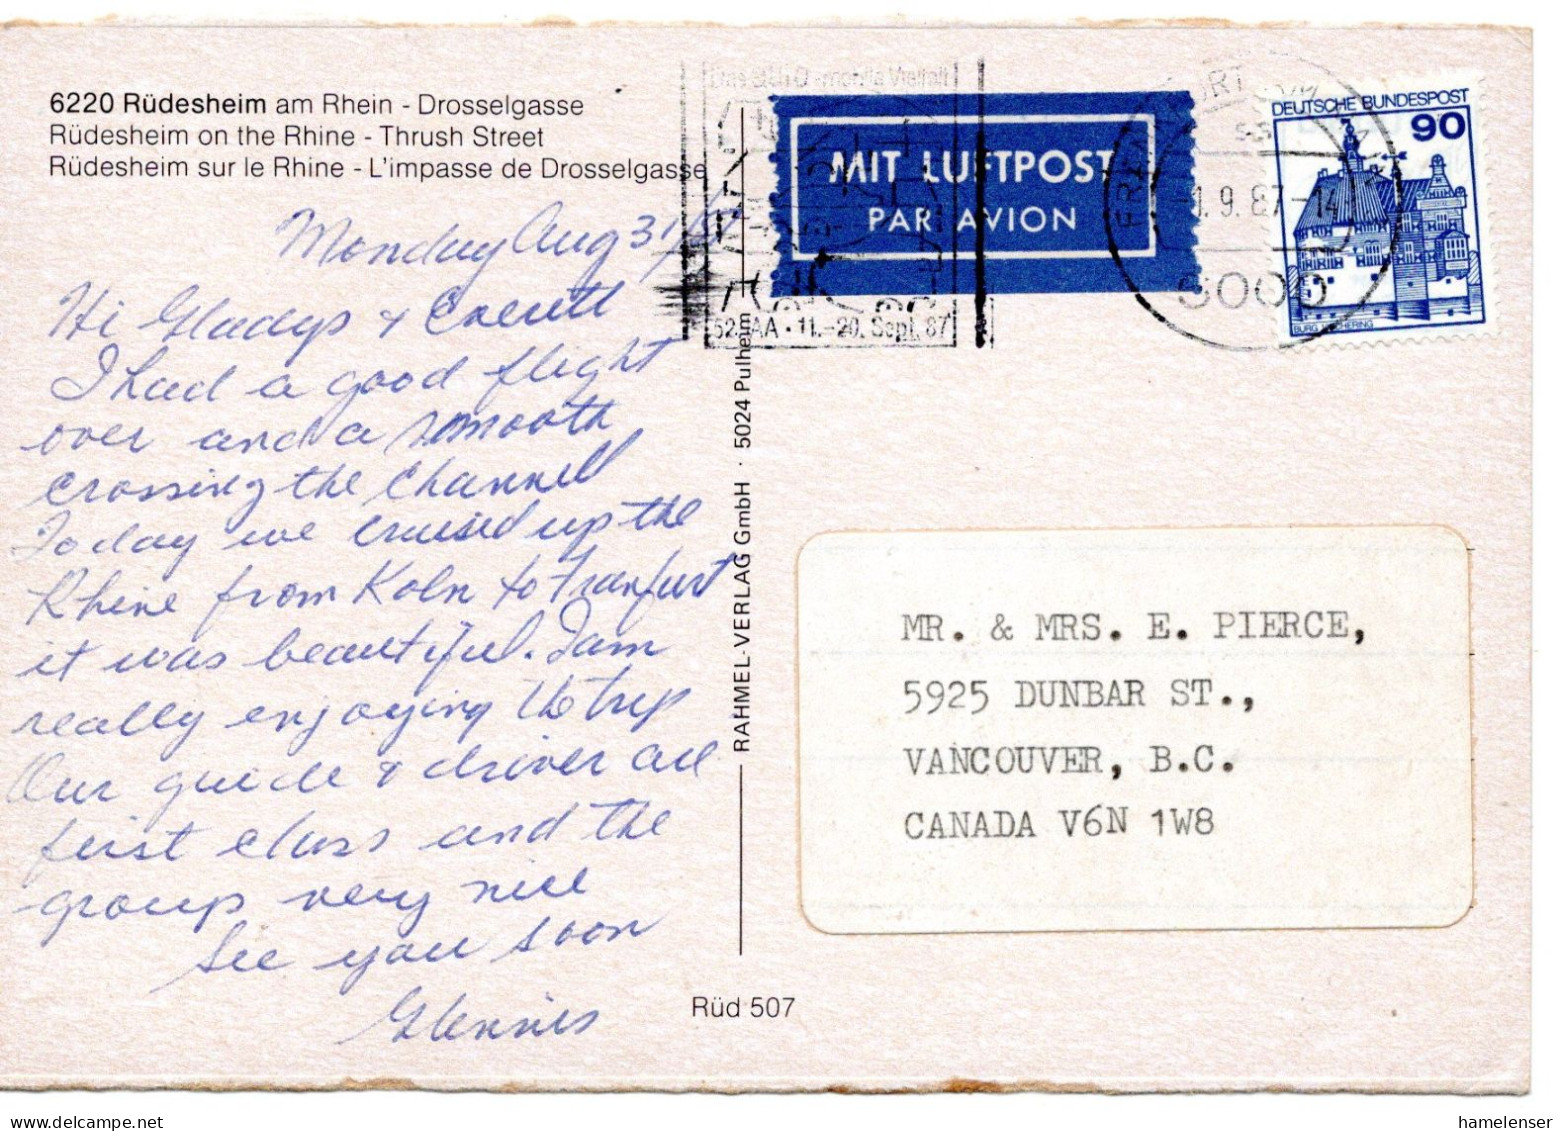 6220 Rüdesheim am Rhein - Drosselgasse
Rüdesheim on the Rhine - Thrush Street
Rüdesheim sur le Rhine - L'impasse de Drosselgasse
Monday Aug 31/87
Hi Gladys & Everett
I had a good flight
over and a smooth
crossing the Channel
Today we cruised up the
Rhine from Koln to Frankfurt
it was beautiful. I am
really enjoying the trip
Our guide & driver are
first class and the
group very nice
See you soon
Glennis
RAHMEL-VERLAG GmbH · 5024 Pulheim
Rüd 507
52. IAA · 11.-20. Sept. 87
MIT LUFTPOST
PAR AVION
-1.9.87-14
6000
DEUTSCHE BUNDESPOST
90
BURG VISCHERING
MR. & MRS. E. PIERCE,
5925 DUNBAR ST.,
VANCOUVER, B.C.
CANADA V6N 1W8
hamelenser